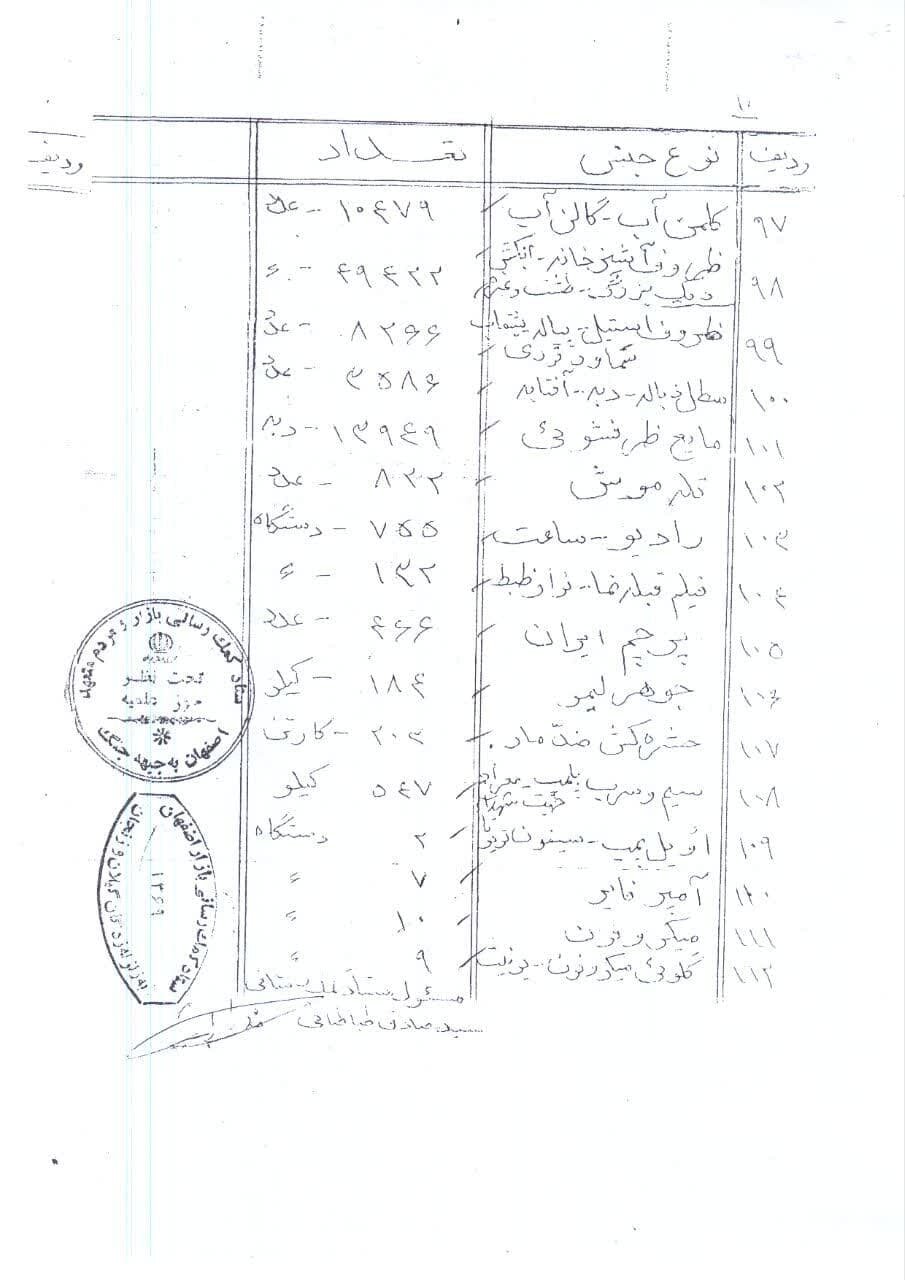 ۱۰
ردیف نوع جنس تعداد ردیف
۹۷ کلمن آب - گالن آب ۱۰۴۷۹ - عدد
۹۸ ظروف آشپزخانه - آبکش ۴۹۴۲۲ - ۶
دیگ بزرگ - طشت و غیره
۹۹ ظروف استیل پیاله بشقاب ۸۲۶۶ - عدد
سماور نردی
۱۰۰ سطل زباله - دبه - آفتابه ۳۵۸۶ - عدد
۱۰۱ مایع ظرفشوئی ۱۳۹۴۹ - دبه
۱۰۲ تله موش ۸۲۲ - عدد
۱۰۳ رادیو - ساعت ۷۵۵ - دستگاه
۱۰۴ فیلم قبله نما - نوار ضبط ۱۳۲ - ۶
۱۰۵ پرچم ایران ۴۶۶ - عدد
۱۰۶ جوهر لیمو ۱۸۴ - کیلو
۱۰۷ حشره کش ضد مار ۲۰۳ - کارتن
۱۰۸ سیم و سرب پلمپ معراج ۵۴۷ کیلو
جهت شهدا
۱۰۹ اویل پمپ - سیفون ۲ دستگاه
۱۱۰ آمپر فایر ۷ ۶
۱۱۱ میکروفن ۱۰ ۶
۱۱۲ گلوئی میکروفون - یونیت ۹ ۶
مسئول ستاد کمک رسانی
سید صادق طباطبائی
ستاد کمک رسانی بازار و مردم متعهد
تحت نظر
حوزه علمیه
اصفهان به جبهه جنگ
ستاد کمک رسانی بازار اصفهان
۱۳۶۹
به زلزله زدگان گیلان و زنجان